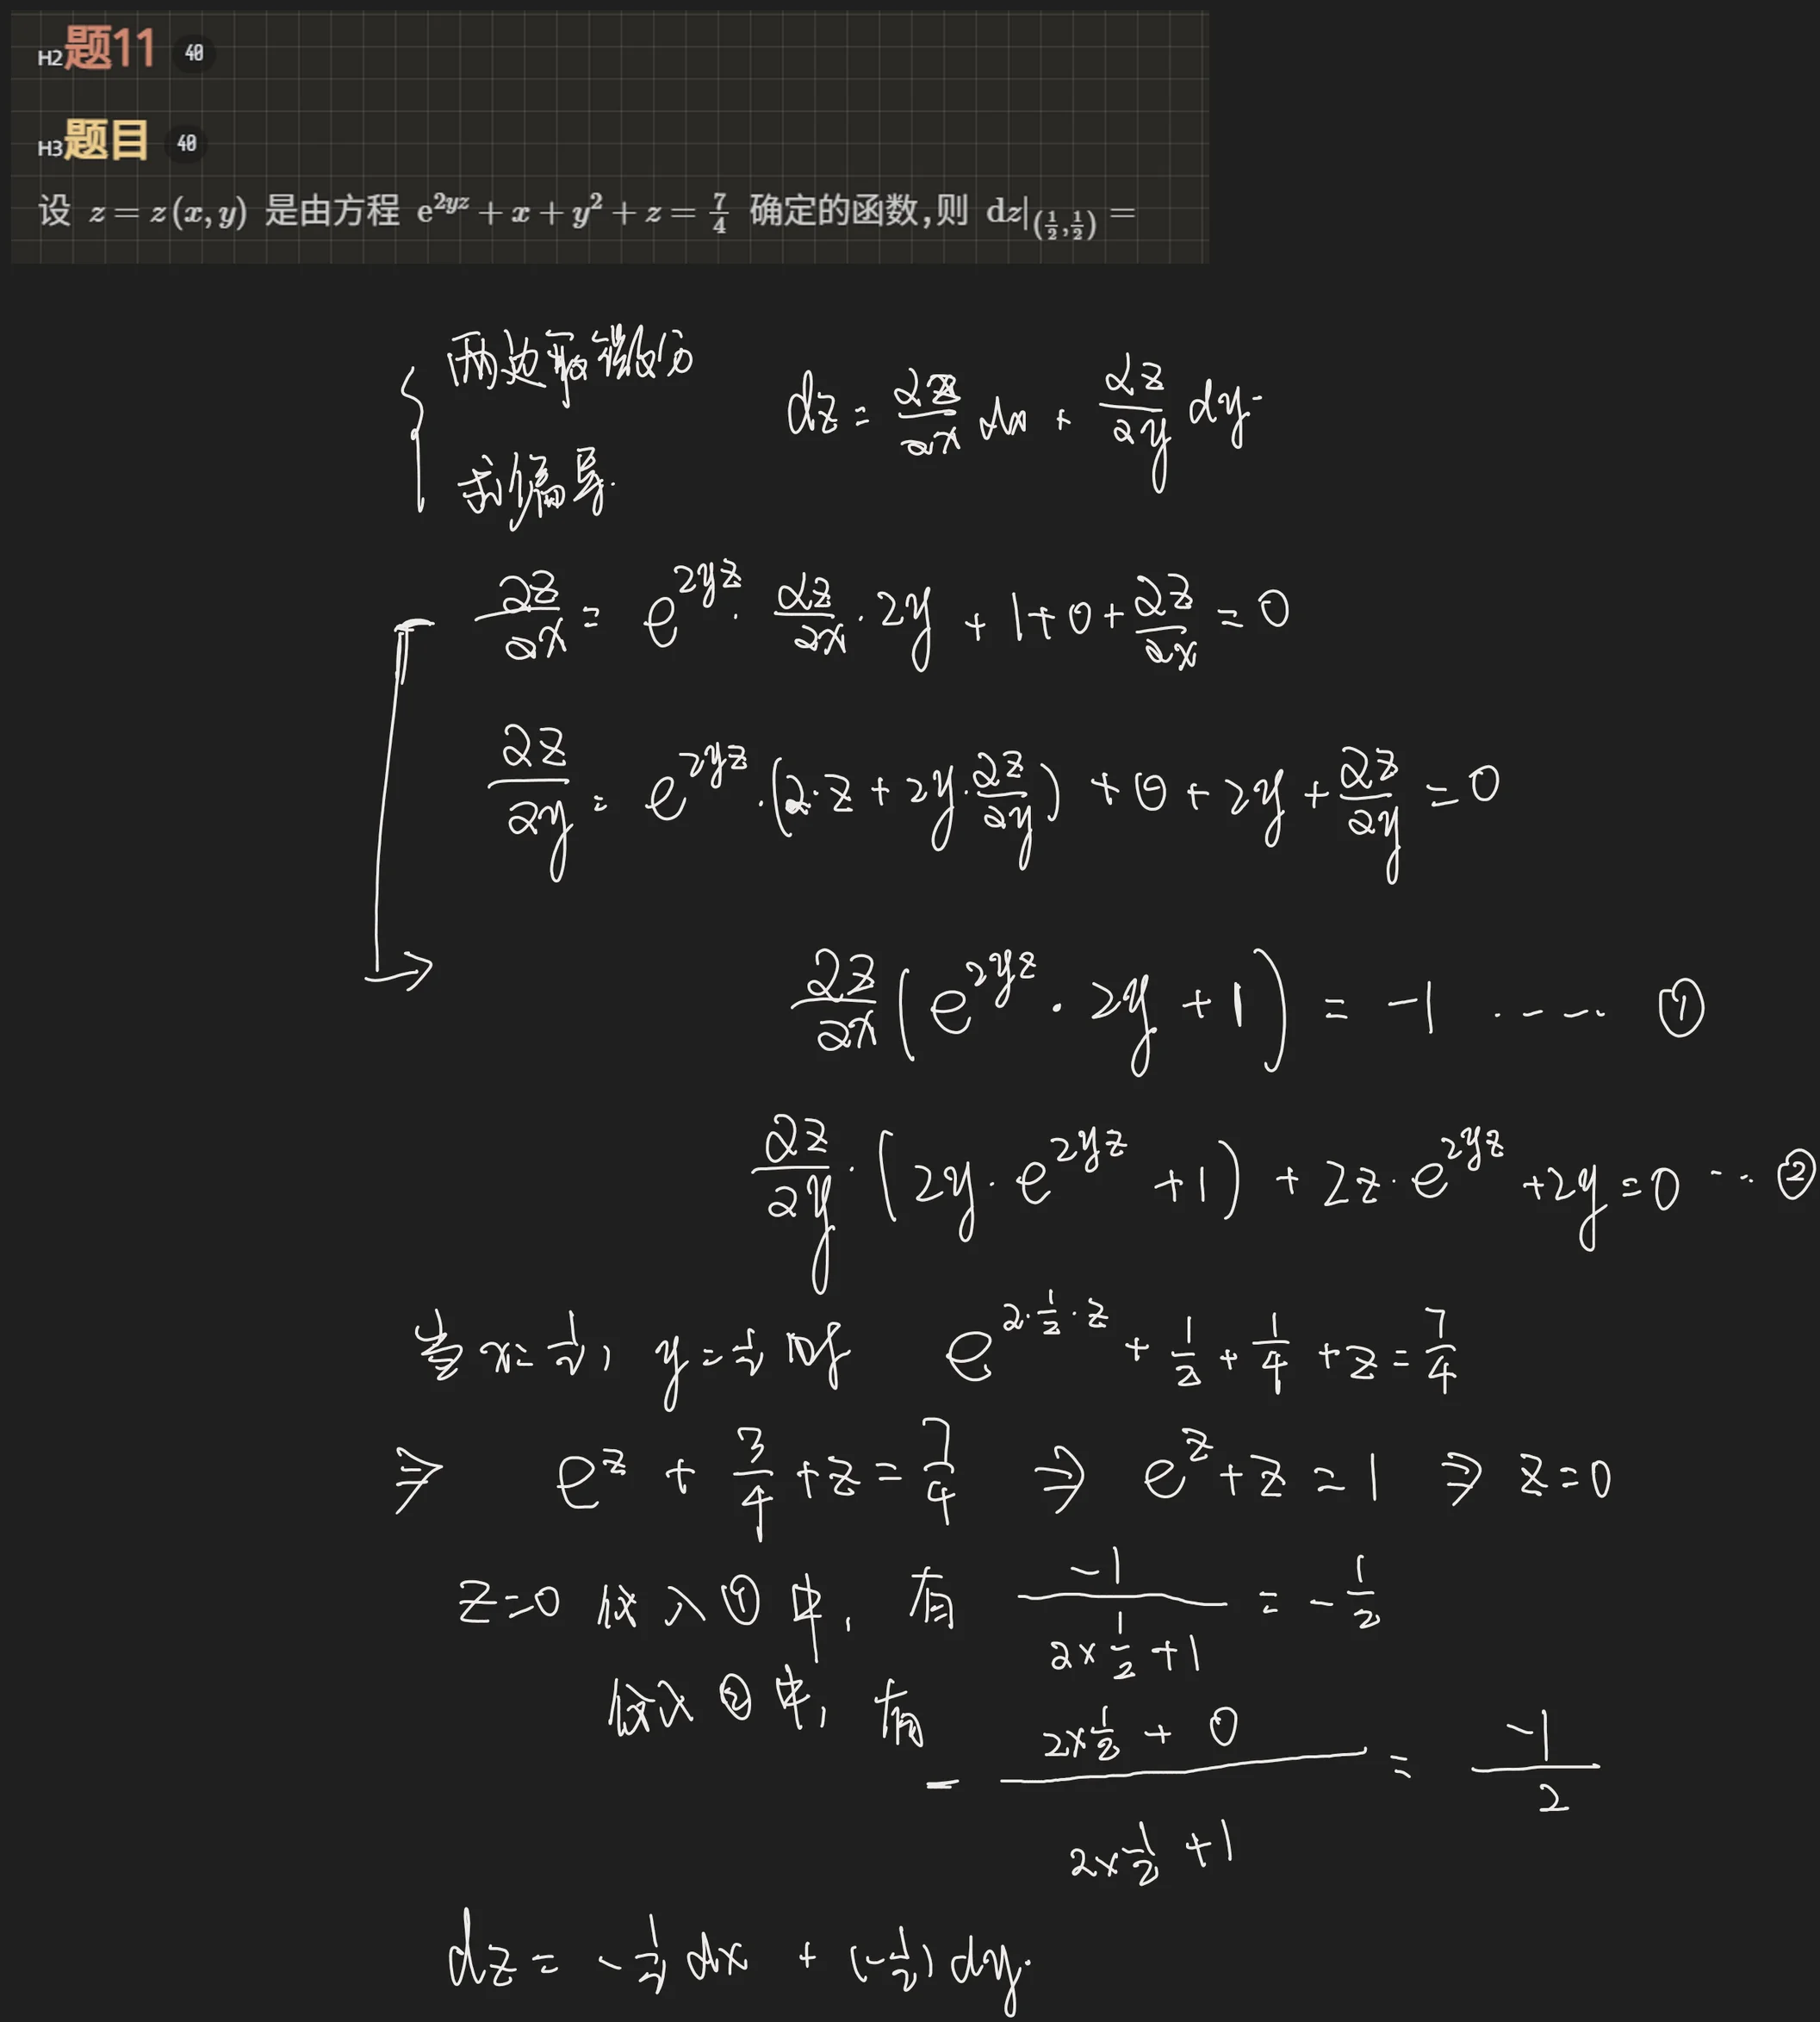 H2题11 40
H3题目 40
设 z = z(x, y) 是由方程 e^{2yz} + x + y^2 + z = \frac{7}{4} 确定的函数,则 dz|_{(\frac{1}{2},\frac{1}{2})} =
{ 两边取微分
求偏导.
dz = \frac{∂z}{∂x} dx + \frac{∂z}{∂y} dy.
\frac{∂z}{∂x} = e^{2yz} · \frac{∂z}{∂x} · 2y + 1 + 0 + \frac{∂z}{∂x} = 0
\frac{∂z}{∂y} = e^{2yz} · (2·z + 2y·\frac{∂z}{∂y}) + 0 + 2y + \frac{∂z}{∂y} = 0
→ \frac{∂z}{∂x} (e^{2yz} · 2y + 1) = -1 ..... ①
\frac{∂z}{∂y} · (2y · e^{2yz} + 1) + 2z · e^{2yz} + 2y = 0 ... ②
当 x = \frac{1}{2}, y = \frac{1}{2} 时 e^{2·\frac{1}{2}·z} + \frac{1}{2} + \frac{1}{4} + z = \frac{7}{4}
⇒ e^z + \frac{3}{4} + z = \frac{7}{4} ⇒ e^z + z = 1 ⇒ z = 0
z = 0 代入 ① 中, 有 \frac{-1}{2×\frac{1}{2}+1} = -\frac{1}{2}
代入 ② 中, 有 - \frac{2×\frac{1}{2} + 0}{2×\frac{1}{2} + 1} = \frac{-1}{2}
dz = -\frac{1}{2} dx + (-\frac{1}{2}) dy.